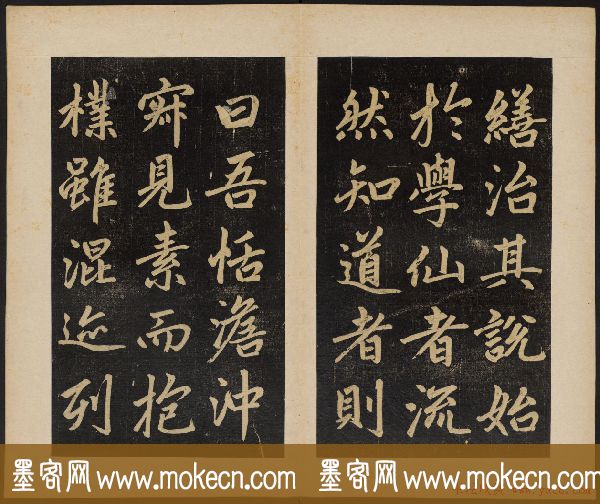 繕治其說始
於學仙者流
然知道者則
曰吾恬澹沖
寂見素而抱
樸雖混迹列
墨客网 www.mokecn.com 墨客网 www.mokecn.com